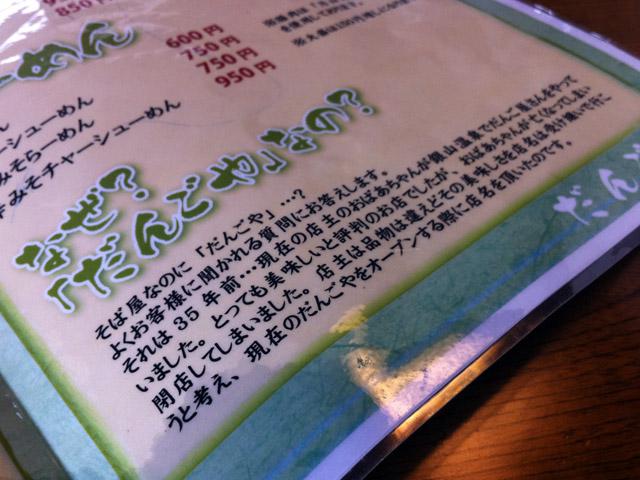 850円
ーめん
600円
750円
750円
950円
ーシューめん
みそらーめん
辛みそチャーシューめん
なぜ?
「だんごや」なの?
そば屋なのに「だんごや」…?
よくお客様に聞かれる質問にお答えします。
それは35年前…現在の店主のおばあちゃんが銀山温泉でだんご屋さんをやって
いました。とっても美味しいと評判のお店でしたが、おばあちゃんが亡くなってしまい
閉店してしまいました。店主は品物は違えどその美味しさを店名は受け継いで行こ
うと考え、現在のだんごやをオープンする際に店名を頂いたのです。
だん